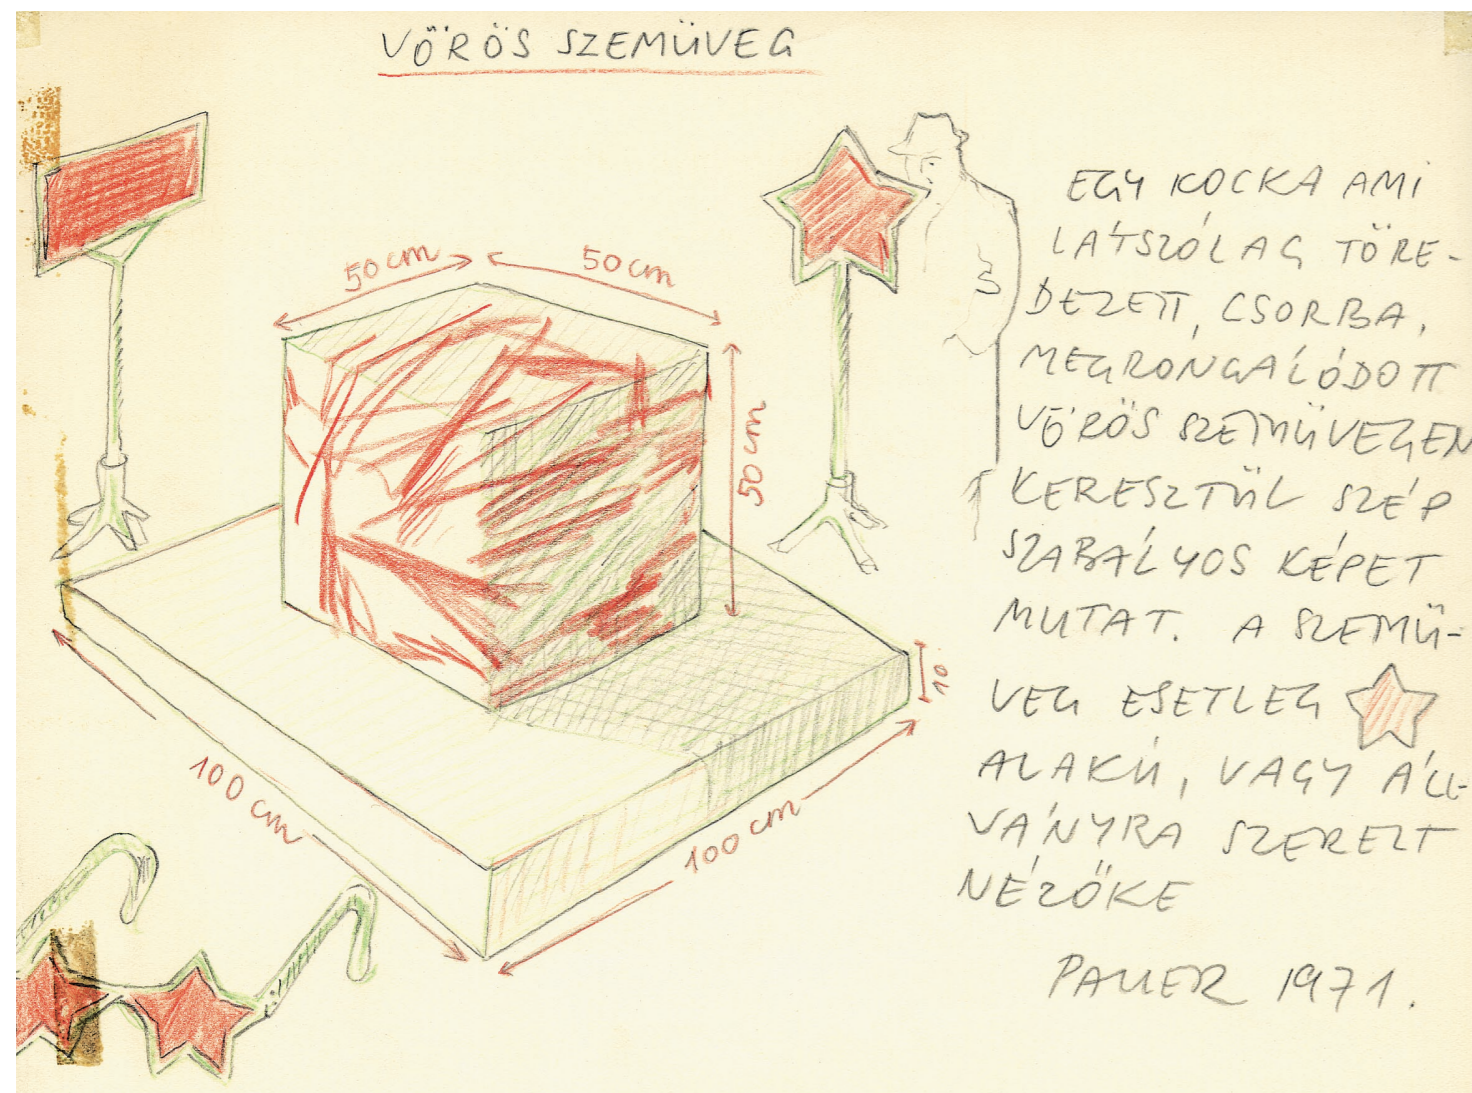 VŐRÖS SZEMÜVEG
50 cm
50 cm
50 cm
10
100 cm
100 cm
EGY KOCKA AMI
LÁTSZÓLAG TÖRE-
DEZETT, CSORBA,
MEGRONGÁLÓDOTT
VÖRÖS SZEMÜVEGEN
KERESZTÜL SZÉP
SZABÁLYOS KÉPET
MUTAT. A SZEMÜ-
VEG ESETLEG
ALAKÚ, VAGY ÁLL-
VÁNYRA SZERELT
NÉZŐKE
PAUER 1971.